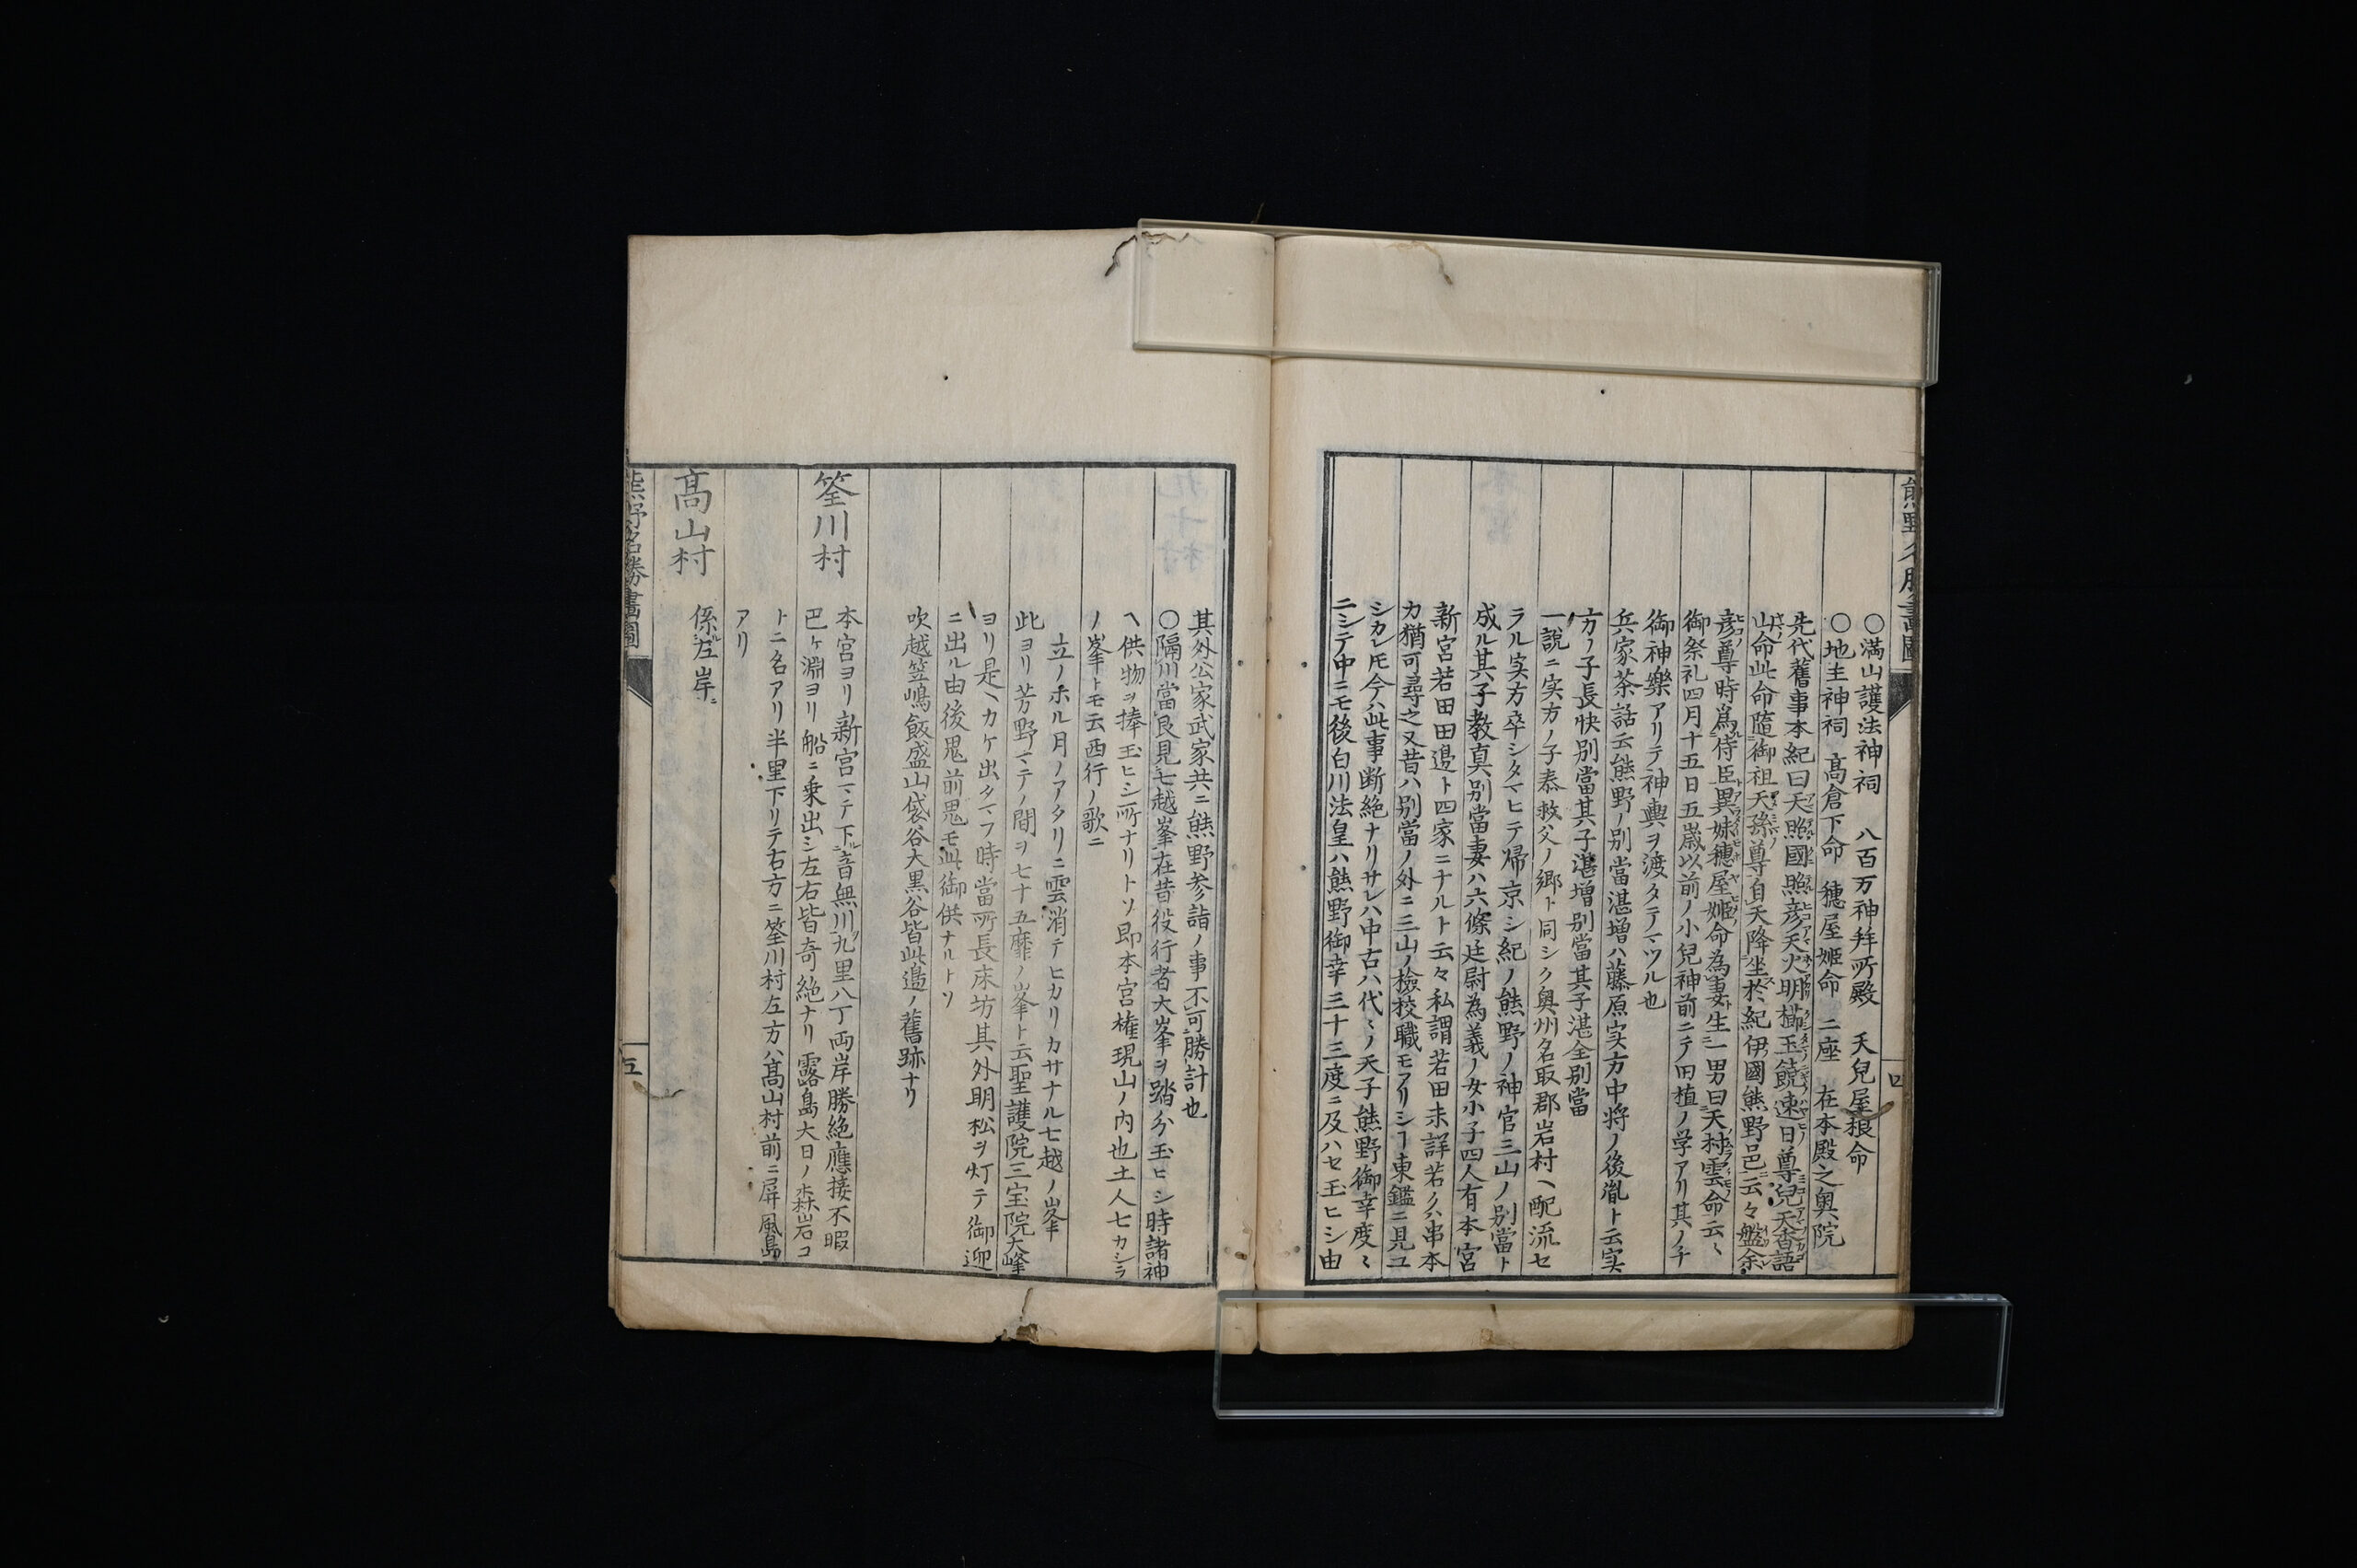 熊野名勝畫圖
○満山護法神祠 八百万神拜所殿 天兒屋根命
○地主神祠 髙倉下命 穗屋姬命 二座 在本殿之奥院
先代舊事本紀曰天照國照彦天火明櫛玉饒速日尊兒天香語
山命此命隨御祖天孫尊自天降坐於紀伊國熊野邑云々盤余
彦尊時爲侍臣異妹穗屋姬命為妻生一男曰天村雲命云〻
御祭礼四月十五日五歳以前ノ小兒神前ニテ田植ノ学アリ其ノチ
御神樂アリテ神輿ヲ渡タテマツル也
兵家茶話云熊野ノ別當湛增ハ藤原実方中将ノ後胤ト云実
方ノ子長快別當其子湛增別當其子湛全別當
一說ニ実方ノ子泰救父ノ郷ト同シク奥州名取郡岩村ヘ配流セ
ラル実方卒シタマヒテ帰京シ紀ノ熊野ノ神官三山ノ別當ト
成ル其子教真別當妻ハ六條廷尉為義ノ女小子四人有本宮
新宮若田田邉ト四家ニナルト云々私謂若田未詳若クハ串本
カ猶可尋之又昔ハ別當ノ外ニ三山ノ檢校職モアリシヿ東鑑ニ見ユ
シカレ𪜈今ハ此事断絶ナリサレハ中古ハ代〻ノ天子熊野御幸度〻
ニシテ中ニモ後白川法皇ハ熊野御幸三十三度ニ及ハセ玉ヒシ由
四
其外公家武家共ニ熊野参詣ノ事不可勝計也
○隔川當艮見七越峯在昔役行者大峯ヲ踏分玉ヒシ時諸神
ヘ供物ヲ捧玉ヒシ所ナリトソ即本宮権現山ノ内也土人七カシラ
ノ峯トモ云西行ノ歌ニ
立ノホル月ノアタリニ雲消テヒカリカサナル七越ノ峯
此ヨリ芳野マテノ間ヲ七十五靡ノ峯ト云聖護院三宝院大峰
ヨリ是ヘカケ出タマフ時當所長床坊其外明松ヲ灯テ御迎
ニ出ル由後鬼前鬼モ此御供ナルトソ
吹越笠嶋飯盛山袋谷大黒谷皆此邉ノ舊跡ナリ
筌川村
本宮ヨリ新宮マテ下ル音無川九里八丁両岸勝絶應接不暇
巴ヶ淵ヨリ船ニ乗出シ左右皆奇絶ナリ露島大日ノ森岩コ
トニ名アリ半里下リテ右方ニ筌川村左方ハ髙山村前ニ屏風島
アリ
髙山村
係ル左岸ニ
熊野名勝畫圖
五